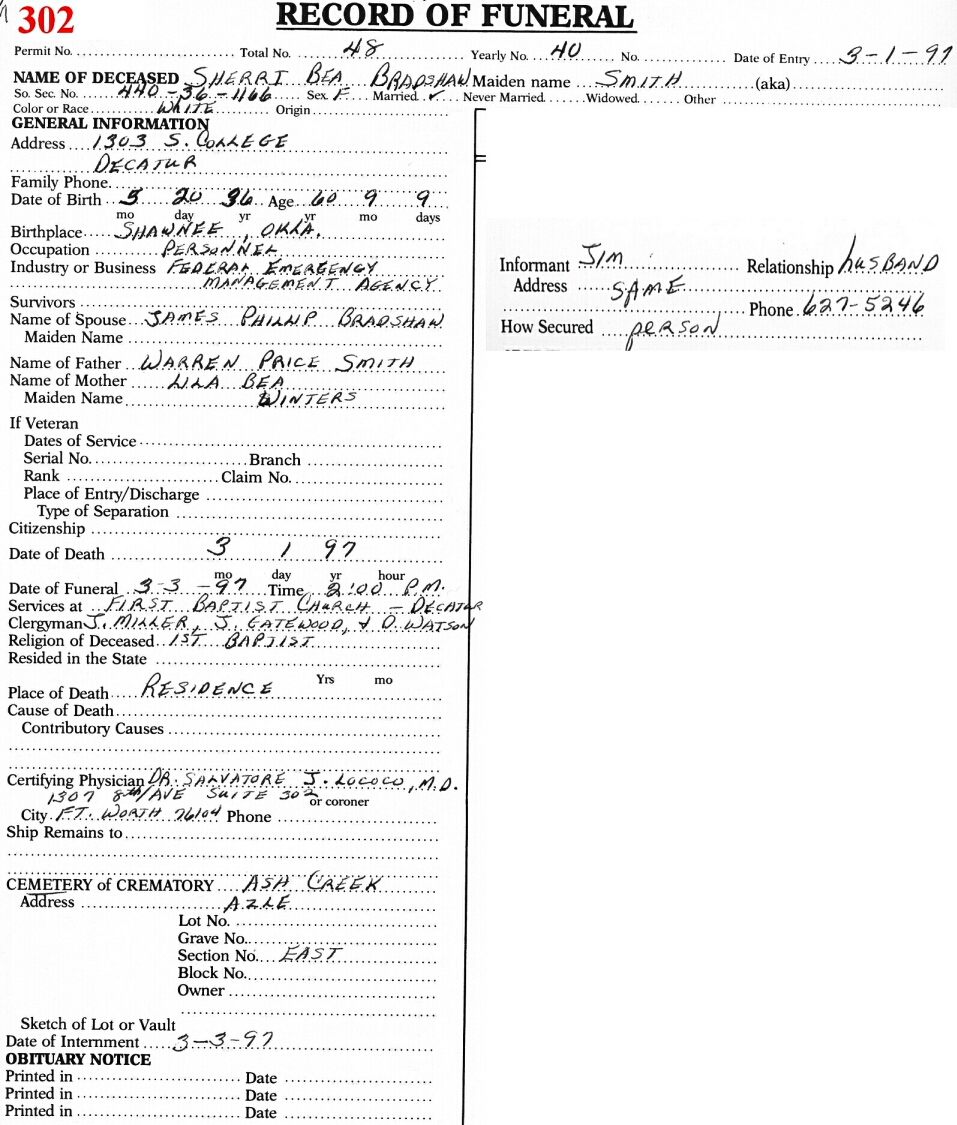 302
RECORD OF FUNERAL
Permit No. Total No. 48 Yearly No. 40 No. Date of Entry 3-1-97
NAME OF DECEASED SHERRI BEA BRADSHAW Maiden name SMITH (aka)
So. Sec. No. 440-36-1166 Sex F Married ✓ Never Married Widowed Other
Color or Race WHITE Origin
GENERAL INFORMATION
Address 1303 S. COLLEGE
DECATUR
Family Phone
Date of Birth 5 20 36 Age 60 9 9
mo day yr yr mo days
Birthplace SHAWNEE, OKLA.
Occupation PERSONNEL
Industry or Business FEDERAL EMERGENCY
MANAGEMENT AGENCY
Survivors
Name of Spouse JAMES PHILLIP BRADSHAW
Maiden Name
Name of Father WARREN PRICE SMITH
Name of Mother LILA BEA
Maiden Name WINTERS
If Veteran
Dates of Service
Serial No. Branch
Rank Claim No.
Place of Entry/Discharge
Type of Separation
Citizenship
Date of Death 3 1 97
mo day yr hour
Date of Funeral 3-3-97 Time 2:00 P.M.
Services at FIRST BAPTIST CHURCH - DECATUR
Clergyman J. MILLER, J. GATEWOOD, & D. WATSON
Religion of Deceased 1ST BAPTIST
Resided in the State
Yrs mo
Place of Death RESIDENCE
Cause of Death
Contributory Causes
Certifying Physician DR. SALVATORE J. LOCOCO, M.D.
1307 8th AVE SUITE 302 or coroner
City FT. WORTH 76104 Phone
Ship Remains to
CEMETERY of CREMATORY ASH CREEK
Address AZLE
Lot No.
Grave No.
Section No. EAST
Block No.
Owner
Sketch of Lot or Vault
Date of Internment 3-3-97
OBITUARY NOTICE
Printed in Date
Printed in Date
Printed in Date
Informant JIM Relationship husBAND
Address SAME
Phone 627-5246
How Secured pERSON